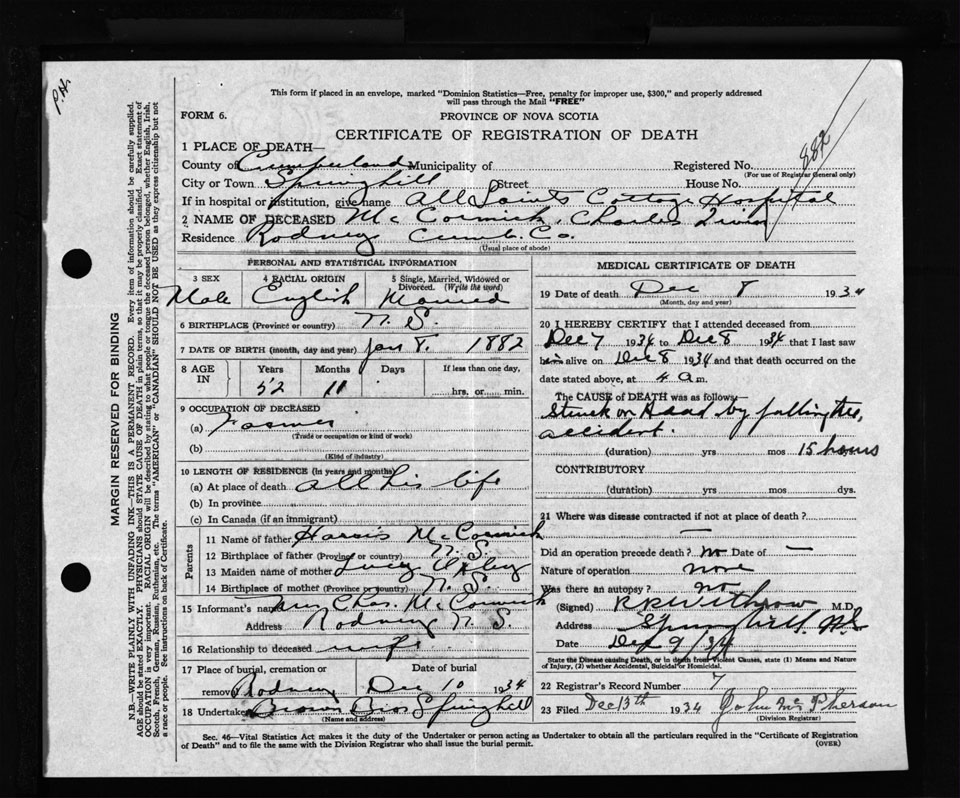 This form if placed in an envelope, marked "Dominion Statistics—Free, penalty for improper use, $300," and properly addressed
will pass through the Mail "FREE"
FORM 6.
PROVINCE OF NOVA SCOTIA
CERTIFICATE OF REGISTRATION OF DEATH
882
1 PLACE OF DEATH—
County of Cumberland Municipality of Registered No.
(For use of Registrar General only)
City or Town Springhill Street House No.
If in hospital or institution, give name All Saints Cottage Hospital
2 NAME OF DECEASED McCormick, Charles
Residence Rodney Cumb. Co.
(Usual place of abode)
PERSONAL AND STATISTICAL INFORMATION
3 SEX 4 RACIAL ORIGIN 5 Single, Married, Widowed or Divorced. (Write the word)
Male English Married
6 BIRTHPLACE (Province or country) N.S.
7 DATE OF BIRTH (month, day and year) Jan 8. 1882
8 AGE IN Years Months Days If less than one day,
52 11 hrs, or min.
9 OCCUPATION OF DECEASED
(a) Farmer
(Trade or occupation or kind of work)
(b)
(Kind of industry)
10 LENGTH OF RESIDENCE (in years and months)
(a) At place of death all his life
(b) In province
(c) In Canada (if an immigrant)
Parents
11 Name of father Harris McCormick
12 Birthplace of father (Province or country) N.S.
13 Maiden name of mother Lucy
14 Birthplace of mother (Province or country) N.S.
15 Informant's name Mrs Chas. McCormick
Address Rodney N.S.
16 Relationship to deceased wife
17 Place of burial, cremation or Date of burial
removal Rodney Dec 10 1934
18 Undertaker Brown Bros Springhill
(Name and address)
MEDICAL CERTIFICATE OF DEATH
19 Date of death Dec 8 1934
(Month, day and year)
20 I HEREBY CERTIFY that I attended deceased from
Dec 7 1934 to Dec 8 1934 that I last saw
him alive on Dec 8 1934 and that death occurred on the
date stated above, at 4 a m.
The CAUSE of DEATH was as follows—
Struck on Head by falling tree,
accident.
(duration) yrs mos 15 hours
CONTRIBUTORY
(duration) yrs mos dys.
21 Where was disease contracted if not at place of death?
—
Did an operation precede death? no Date of —
Nature of operation none
Was there an autopsy? no
(Signed) Withrow M.D.
Address Springhill N.S.
Date Dec 9/34
State the Disease causing Death, or in death from Violent Causes, state (1) Means and Nature
of Injury, (2) whether Accidental, Suicidal or Homicidal.
22 Registrar's Record Number 7
23 Filed Dec 13th 1934 John McPherson
(Division Registrar)
Sec. 46—Vital Statistics Act makes it the duty of the Undertaker or person acting as Undertaker to obtain all the particulars required in the "Certificate of Registration
of Death" and to file the same with the Division Registrar who shall issue the burial permit.
(OVER)
MARGIN RESERVED FOR BINDING
N.B.—WRITE PLAINLY WITH UNFADING INK—THIS IS A PERMANENT RECORD. Every item of information should be carefully supplied.
AGE should be stated EXACTLY. PHYSICIANS should STATE CAUSE OF DEATH in plain terms, so that it may be properly classified. Exact statement of
OCCUPATION is very important. RACIAL ORIGIN will be described by stating to what people or tongue the deceased person belonged, whether English, Irish,
Scotch, French, German, Russian, Ruthenian, etc. The terms "AMERICAN" or "CANADIAN" SHOULD NOT BE USED as they express citizenship but not
a race or people. See instructions on back of Certificate.